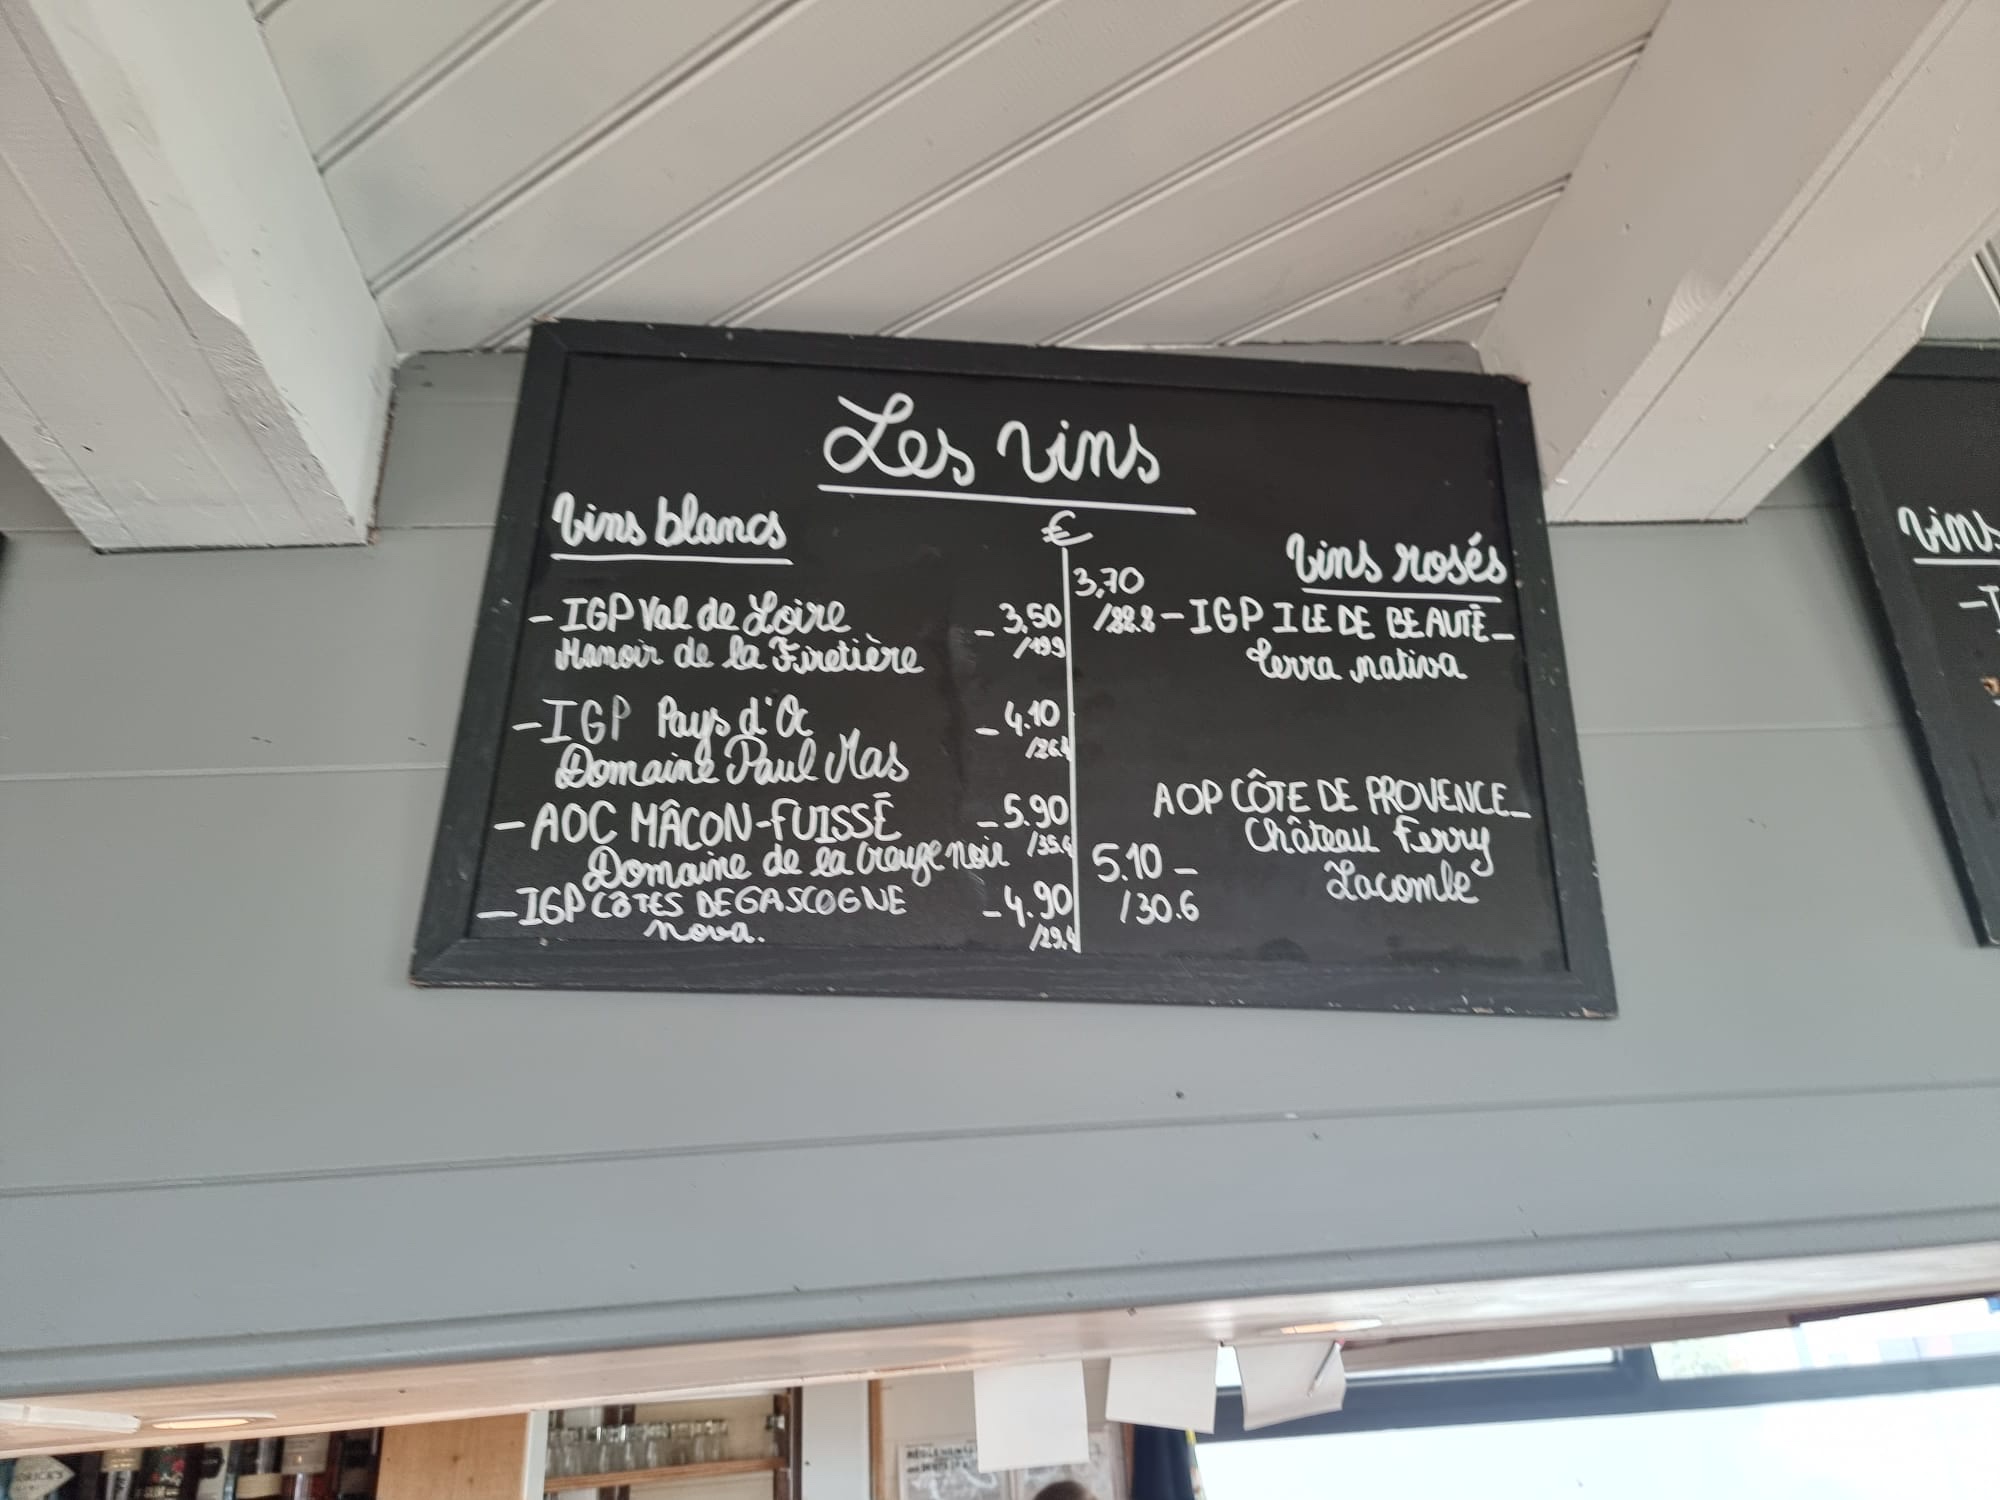 Les vins
Vins blancs
€
- IGP Val de Loire - 3,50
Manoir de la Firetière /19.9
- IGP Pays d'Oc - 4.10
Domaine Paul Mas /26.4
- AOC MÂCON-FUISSÉ - 5.90
Domaine de la Creuze noir /35.4
- IGP CÔTES DE GASCOGNE - 4.90
nova. /29.4
Vins rosés
3,70
/22.2 - IGP ILE DE BEAUTÉ -
Terra nativa
AOP CÔTE DE PROVENCE -
Château Ferry
5.10 - Lacombe
/30.6
vins